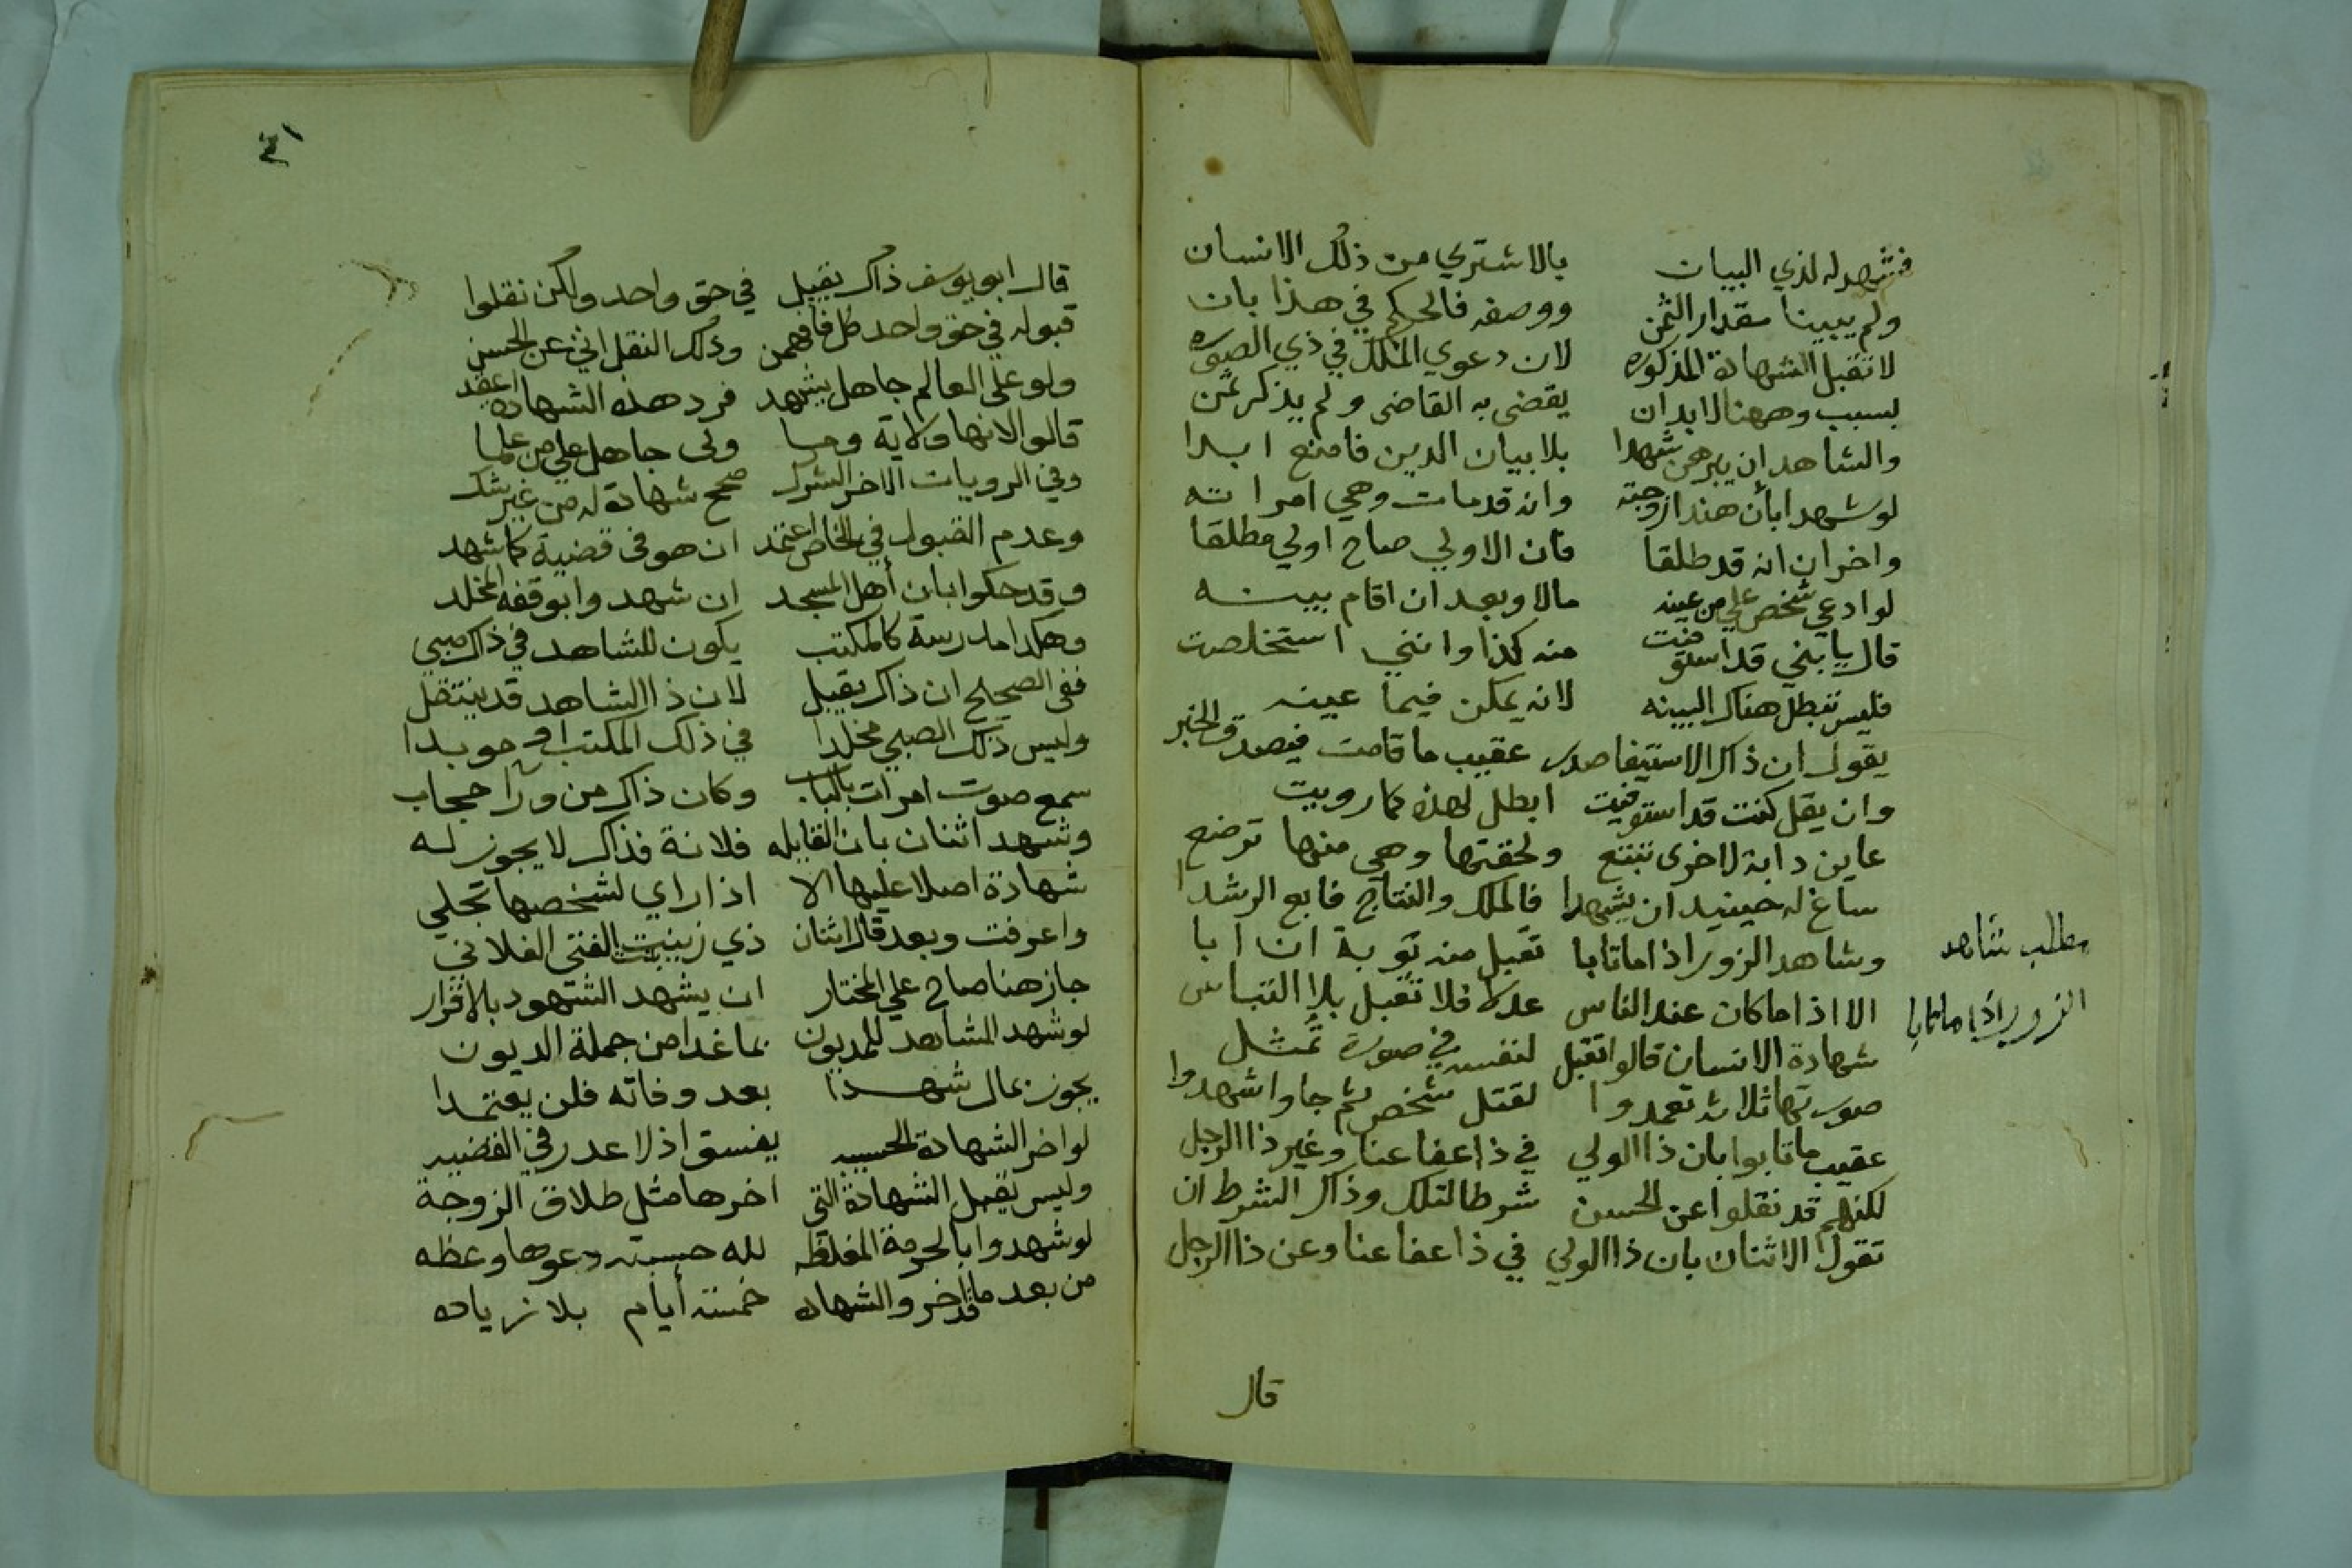 فشهد له لذي البيان بالاشتري من ذلك الانسان
ولم يبينا مقدار الثمن ووصفه فالحكم في هذا بان
لا تقبل الشهادة المذكوره لان دعوي الملك في ذي الصوره
بسبب وههنا لا بد ان يقضى به القاضى ولم يذكر ثمن
والشاهد ان يبرهن شهدا بلا بيان الدين فامنع ابدا
لو شهدا بأن هندا زوجته وانه قد مات وهي امراته
واخران انه قد طلقا فان الاولي صاح اولي مطلقا
لو ادعي شخص علي من عينه مالا وبعد ان اقام بينه
قال يا بني قد استوفيت منه كذا وانني استخلصت
فليس تبطل هناك البينه لانه يمكن فيما عينه
يقول ان ذاك الاستيفا صدر عقيب ما قامت فيصدق الخبر
وان يقل كنت قد استوفيت ابطل لهذه كما رويت
عاين دابة لاخرى تتبع ولحقتها وهي منها ترضع
ساغ له حينيد ان يشهدا فالملك والنتاج فابع الرشدا
وشاهد الزور اذا ما تابا تقبل منه توبة ان ابا
الا اذا ما كان عند الناس عدلا فلا تقبل بلا التباس
شهادة الانسان قالوا تقبل لنفسه في صورة تمثل
صورتها ثلاثة تعمدوا لقتل شخص ثم جاوا شهدوا
عقيب ما تابوا بان ذا الولي في ذا عفا عنا وغير ذا الرجل
لكنهم قد نقلوا عن الحسن شرطا لتلك وذاك الشرط ان
تقول الاثنان بان ذا الولي في ذا عفا عنا وعن ذا الرجل
مطلب شاهد
الزور اذا ما تابا
قال
٤١
قال ابو يوسف ذاك يقبل في حق واحد ولكن نقلوا
قبوله في حق واحد كل فافهمن وذلك النقل اتي عن الحسن
ولو على العالم جاهل يشهد فرد هذه الشهاده اعقد
قالوا لانها ولاية وما ولى جاهل علي من علما
وفي الرويات الاخر الشرك صحح شهادة له من غير شك
وعدم القبول في الخاص اعتمد ان هو في قضية كما شهد
وقد حكوا بان أهل المسجد ان شهدوا بوقفه المخلد
وهكذا مدرسة كالمكتب يكون للشاهد في ذاك صبي
ففى الصحيح ان ذاك يقبل لان ذا الشاهد قد ينتقل
وليس ذلك الصبي مخلدا في ذلك المكتب او موبدا
سمع صوت امرات بالباب وكان ذاك من ورآ حجاب
وشهد اثنان بان القايله فلانة فذاك لا يجوز له
شهادة اصلا عليها الا اذا راي لشخصها تجلي
واعرفت وبعد قال اثنان ذي زينب بنت الفتى الفلاني
جاز هنا صاح علي المختار ان يشهد الشهود بالاقرار
لو شهد الشاهد للمديون بما غدا من جملة الديون
يجوز بمال شهدا بعد وفاته فلن يعتمدا
لو اخر الشهادة الحسيبه يفسق اذ لا عدر في القضيه
وليس تقبل الشهادة التي اخرها مثل طلاق الزوجة
لو شهدوا بالحرمة المغلظه لله حسبته دعوها وعظه
من بعد ما قد اخروا الشهاده خمسة أيام بلا زياده